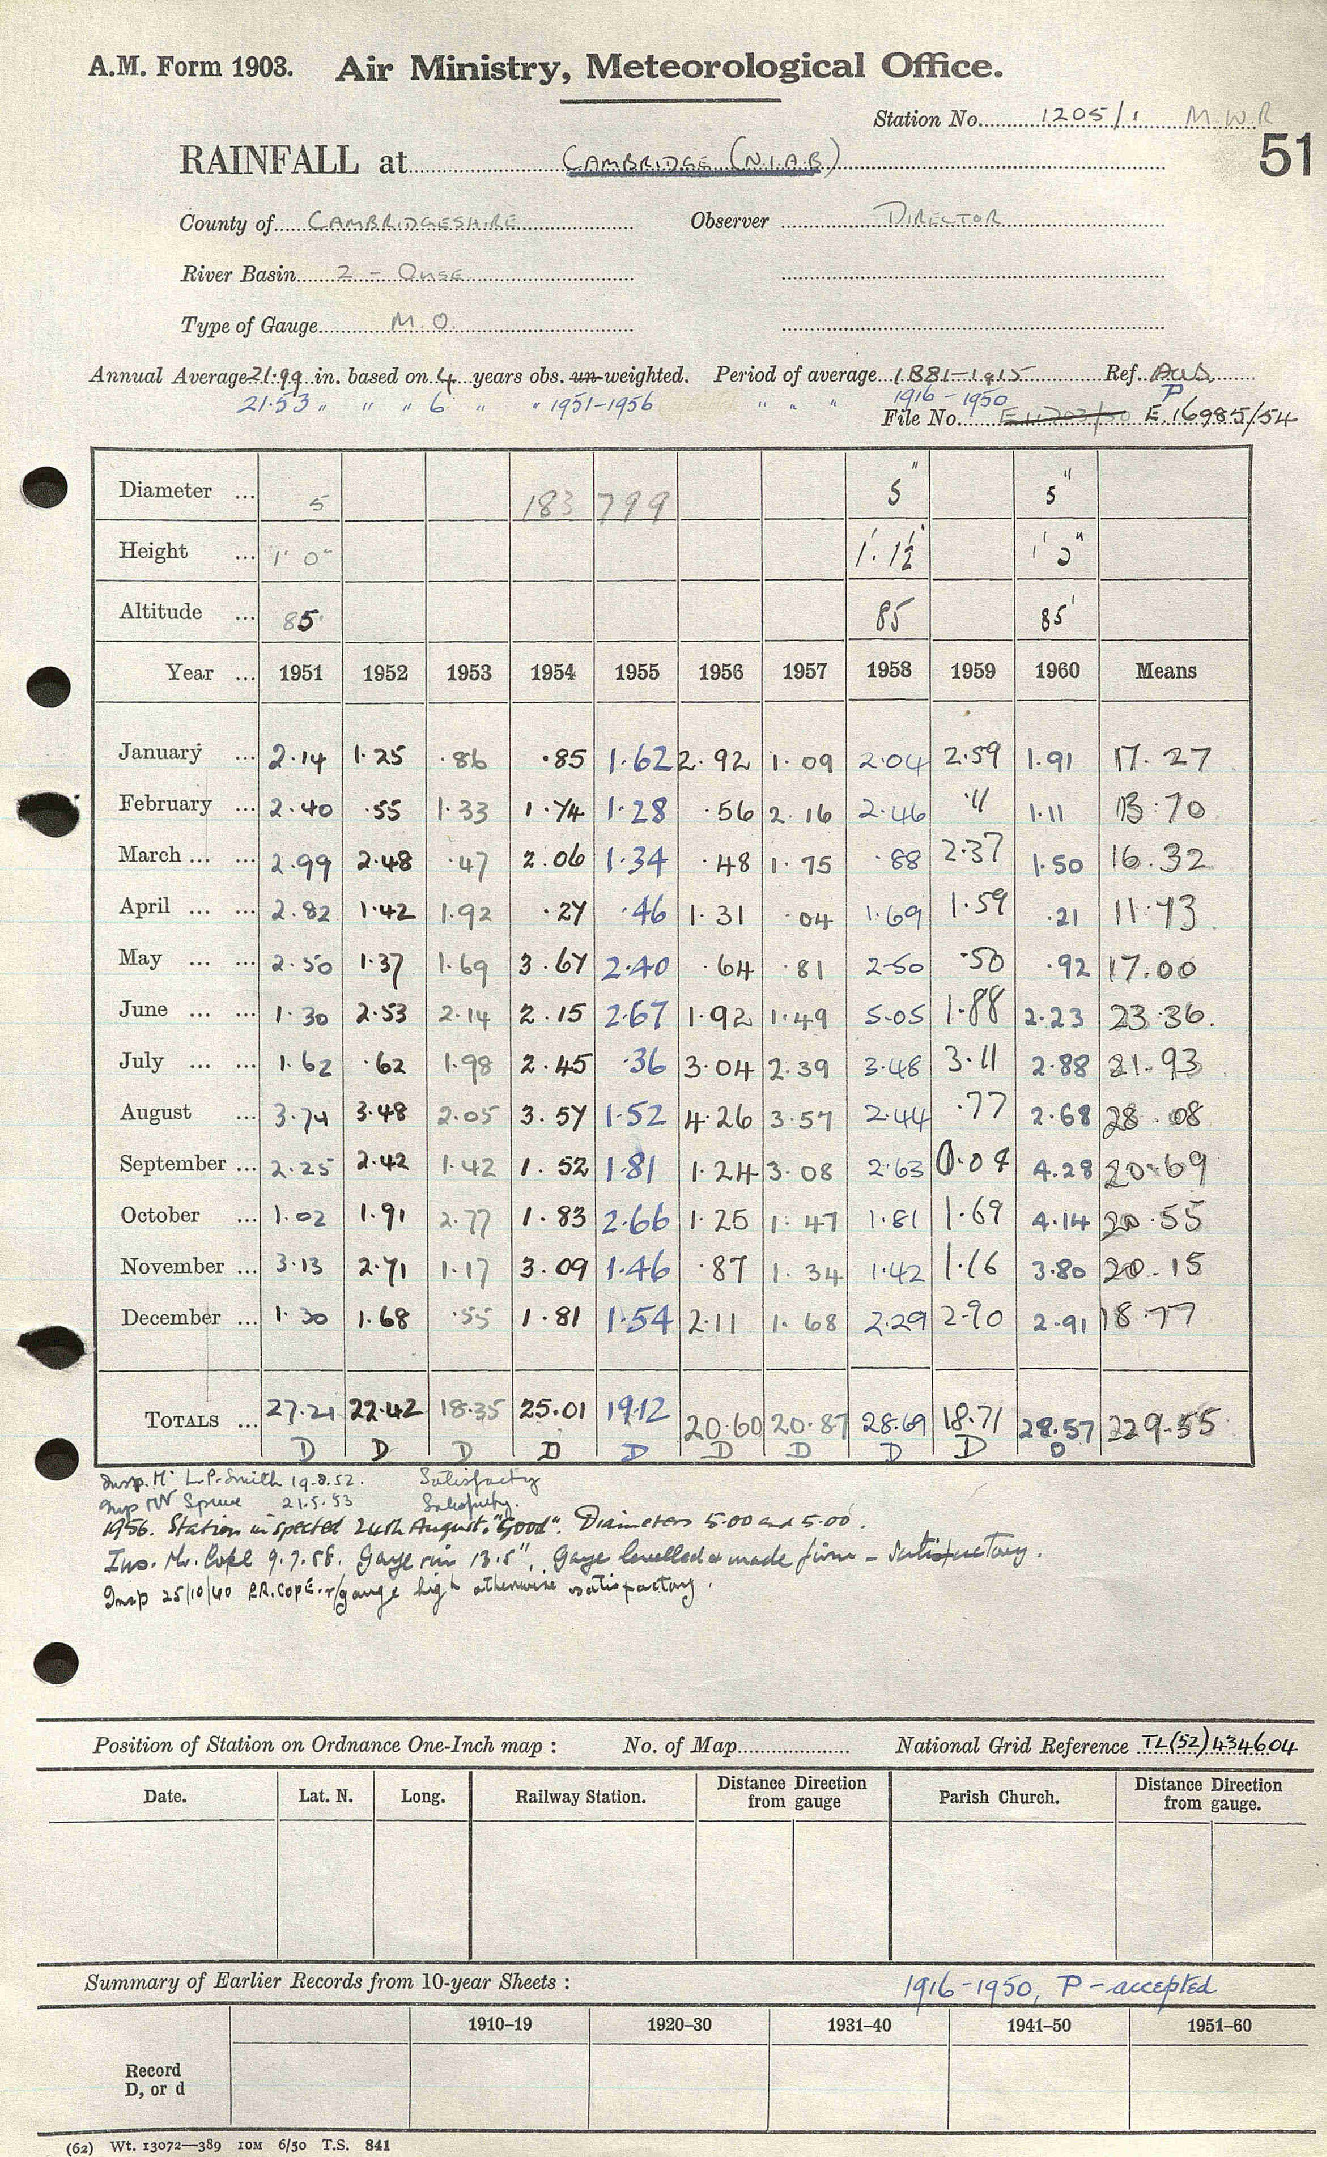 A.M. Form 1903. Air Ministry, Meteorological Office.
Station No. 1205/1 M.W.R
RAINFALL at CAMBRIDGE (N.I.A.B) 51
County of CAMBRIDGESHIRE Observer DIRECTOR
River Basin 2 - OUSE
Type of Gauge M.O.
Annual Average 21.99 in. based on 4 years obs. un-weighted. Period of average 1881-1915 Ref.
21.53 " " " 6 " " 1951-1956 " " " 1916-1950 P
File No. E.16985/54
Diameter ... 5 183 799 5" 5"
Height ... 1' 0" 1'. 1½" 1' 0"
Altitude ... 85 85 85'
Year ... 1951 1952 1953 1954 1955 1956 1957 1958 1959 1960 Means
January ... 2.14 1.25 .86 .85 1.62 2.92 1.09 2.04 2.59 1.91 17.27
February ... 2.40 .55 1.33 1.74 1.28 .56 2.16 2.46 .11 1.11 13.70
March ... ... 2.99 2.48 .47 2.06 1.34 .48 1.75 .88 2.37 1.50 16.32
April ... ... 2.82 1.42 1.92 .27 .46 1.31 .04 1.69 1.59 .21 11.73
May ... ... 2.50 1.37 1.69 3.67 2.40 .64 .81 2.50 .50 .92 17.00
June ... ... 1.30 2.53 2.14 2.15 2.67 1.92 1.49 5.05 1.88 2.23 23.36.
July ... ... 1.62 .62 1.98 2.45 .36 3.04 2.39 3.48 3.11 2.88 21.93
August ... 3.74 3.48 2.05 3.57 1.52 4.26 3.57 2.44 .77 2.68 28.08
September ... 2.25 2.42 1.42 1.52 1.81 1.24 3.08 2.63 0.04 4.28 20.69
October ... 1.02 1.91 2.77 1.83 2.66 1.25 1.47 1.81 1.69 4.14 20.55
November ... 3.13 2.71 1.17 3.09 1.46 .87 1.34 1.42 1.16 3.80 20.15
December ... 1.30 1.68 .55 1.81 1.54 2.11 1.68 2.29 2.90 2.91 18.77
TOTALS ... 27.21 22.42 18.35 25.01 19.12 20.60 20.87 28.69 18.71 28.57 229.55
D D D D D D D D D D
Insp. Mr L.P. Smith 19.8.52. Satisfacty
Insp Mr Spence 21.5.53 Satisfacty.
1956. Station inspected 24th August. "Good". Diameters 5.00 and 5.00.
Ins. Mr. Cope 9.7.58. Gauge rim 13.5", Gauge levelled & made firm - satisfactory.
Insp 25/10/60 P.R. COPE. r/gauge high otherwise satisfactory.
Position of Station on Ordnance One-Inch map : No. of Map National Grid Reference TL(52)434604
Date. Lat. N. Long. Railway Station. Distance Direction from gauge Parish Church. Distance Direction from gauge.
Summary of Earlier Records from 10-year Sheets : 1916-1950, P-accepted
1910–19 1920–30 1931–40 1941–50 1951–60
Record
D, or d
(62) Wt. 13072—389 10M 6/50 T.S. 841